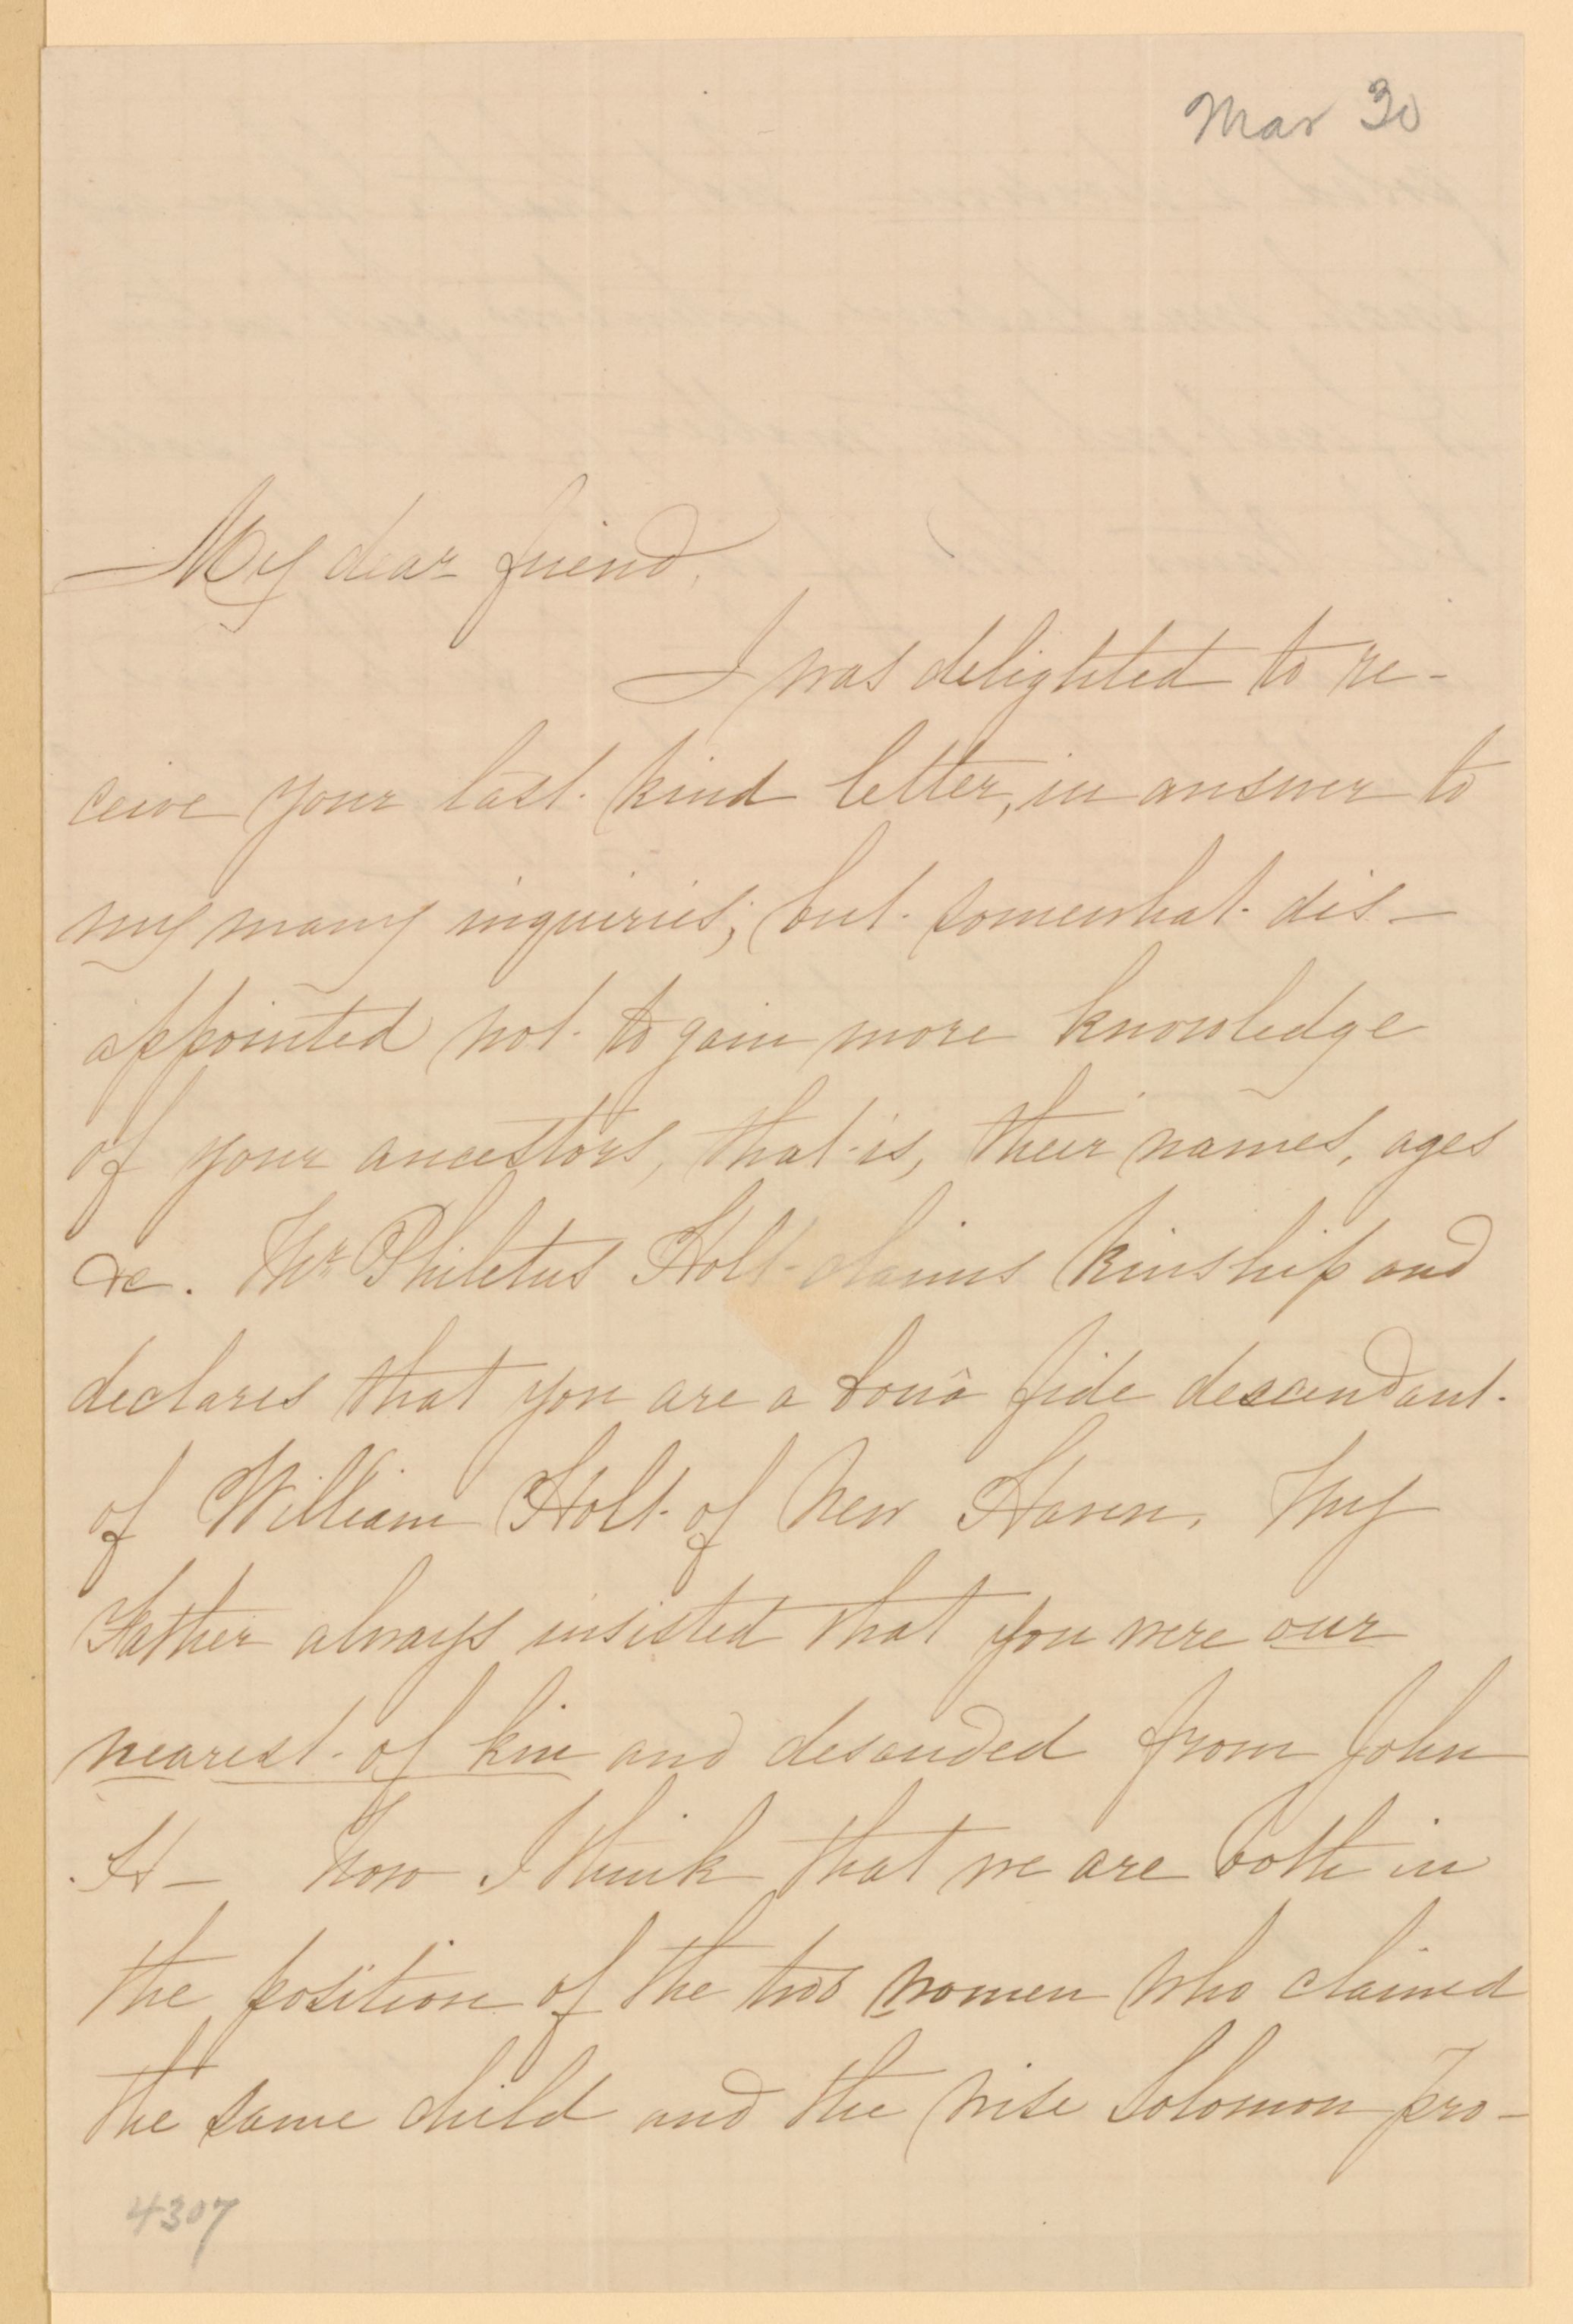 Mar 30
My dear friend,
I was delighted to re-
ceive your last kind letter, in answer to
my many inquiries; but somewhat dis-
appointed not to gain more knowledge
of your ancestors, that is, their names, ages
&c. Mr Philetus Holt claims kinship and
declares that you are a bonâ fide descendant
of William Holt of New Haven. My
Father always insisted that you were our
nearest of kin and desended from John
H— Now I think that we are both in
the position of the two women who claimed
the same child and the wise Solomon pro-
4307